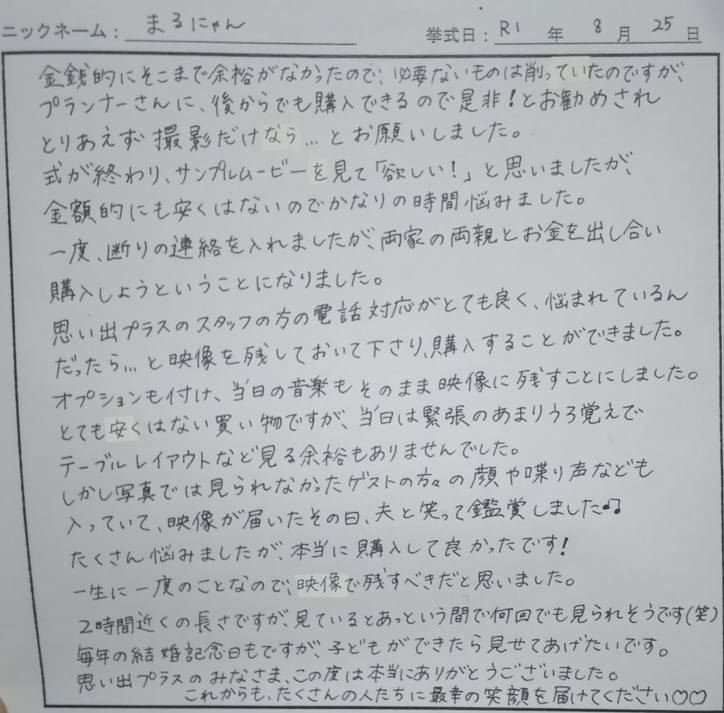 ニックネーム： まるにゃん 挙式日： R1 年 8 月 25 日
金銭的にそこまで余裕がなかったので、必要ないものは削っていたのですが、
プランナーさんに、後からでも購入できるので是非！とお勧めされ
とりあえず撮影だけなら…とお願いしました。
式が終わり、サンプルムービーを見て「欲しい！」と思いましたが、
金額的にも安くはないのでかなりの時間悩みました。
一度、断りの連絡を入れましたが、両家の両親とお金を出し合い
購入しようということになりました。
思い出プラスのスタッフの方の電話対応がとても良く、悩まれているん
だったら…と映像を残しておいて下さり、購入することができました。
オプションも付け、当日の音楽もそのまま映像に残すことにしました。
とても安くはない買い物ですが、当日は緊張のあまりうろ覚えで
テーブルレイアウトなど見る余裕もありませんでした。
しかし写真では見られなかったゲストの方々の顔や喋り声なども
入っていて、映像が届いたその日、夫と笑って鑑賞しました♫
たくさん悩みましたが、本当に購入して良かったです！
一生に一度のことなので、映像で残すべきだと思いました。
2時間近くの長さですが、見ているとあっという間で何回でも見られそうです(笑)
毎年の結婚記念日もですが、子どもができたら見せてあげたいです。
思い出プラスのみなさま、この度は本当にありがとうございました。
これからも、たくさんの人たちに最幸の笑顔を届けてください♡♡